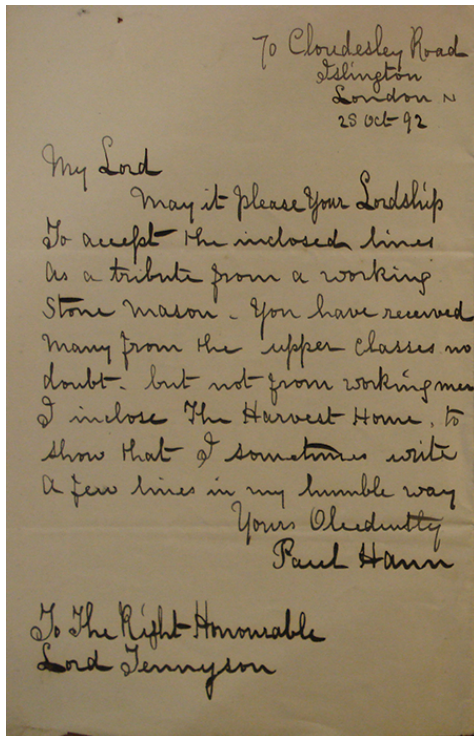 70 Cloudesley Road
Islington
London N
28 Oct 92
My Lord
May it please Your Lordship
To accept the inclosed lines
as a tribute from a working
Stone Mason - You have received
Many from the upper classes no
doubt - but not from working men
I inclose The Harvest Home, to
show that I sometimes write
a few lines in my humble way
Yours Obediently
Paul Hann
To The Right Honourable
Lord Tennyson